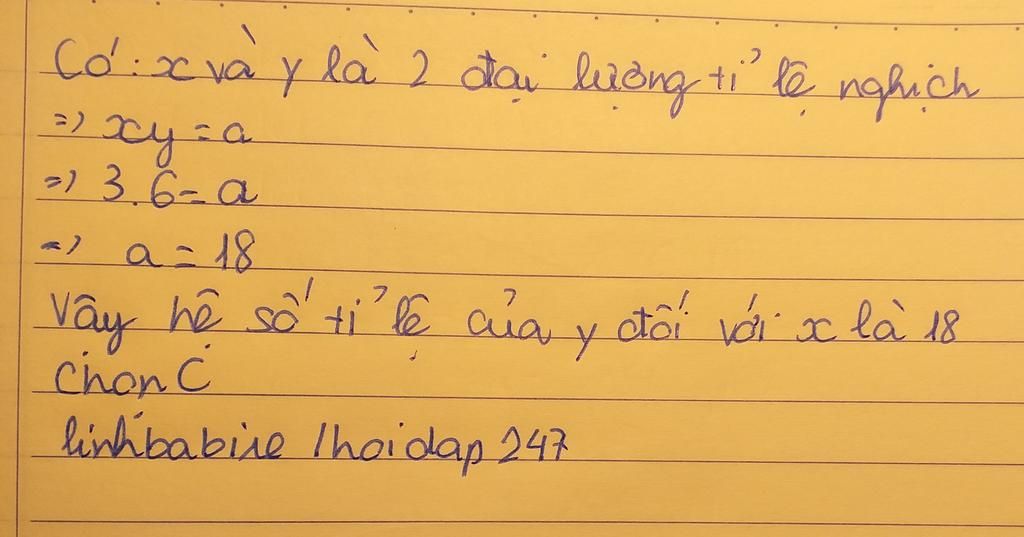 Có: x và y là 2 đại lượng tỉ lệ nghịch
=> xy = a
=> 3.6 = a
=> a = 18
Vậy hệ số tỉ lệ của y đối với x là 18
Chọn C
linhbabie /hoidap 247